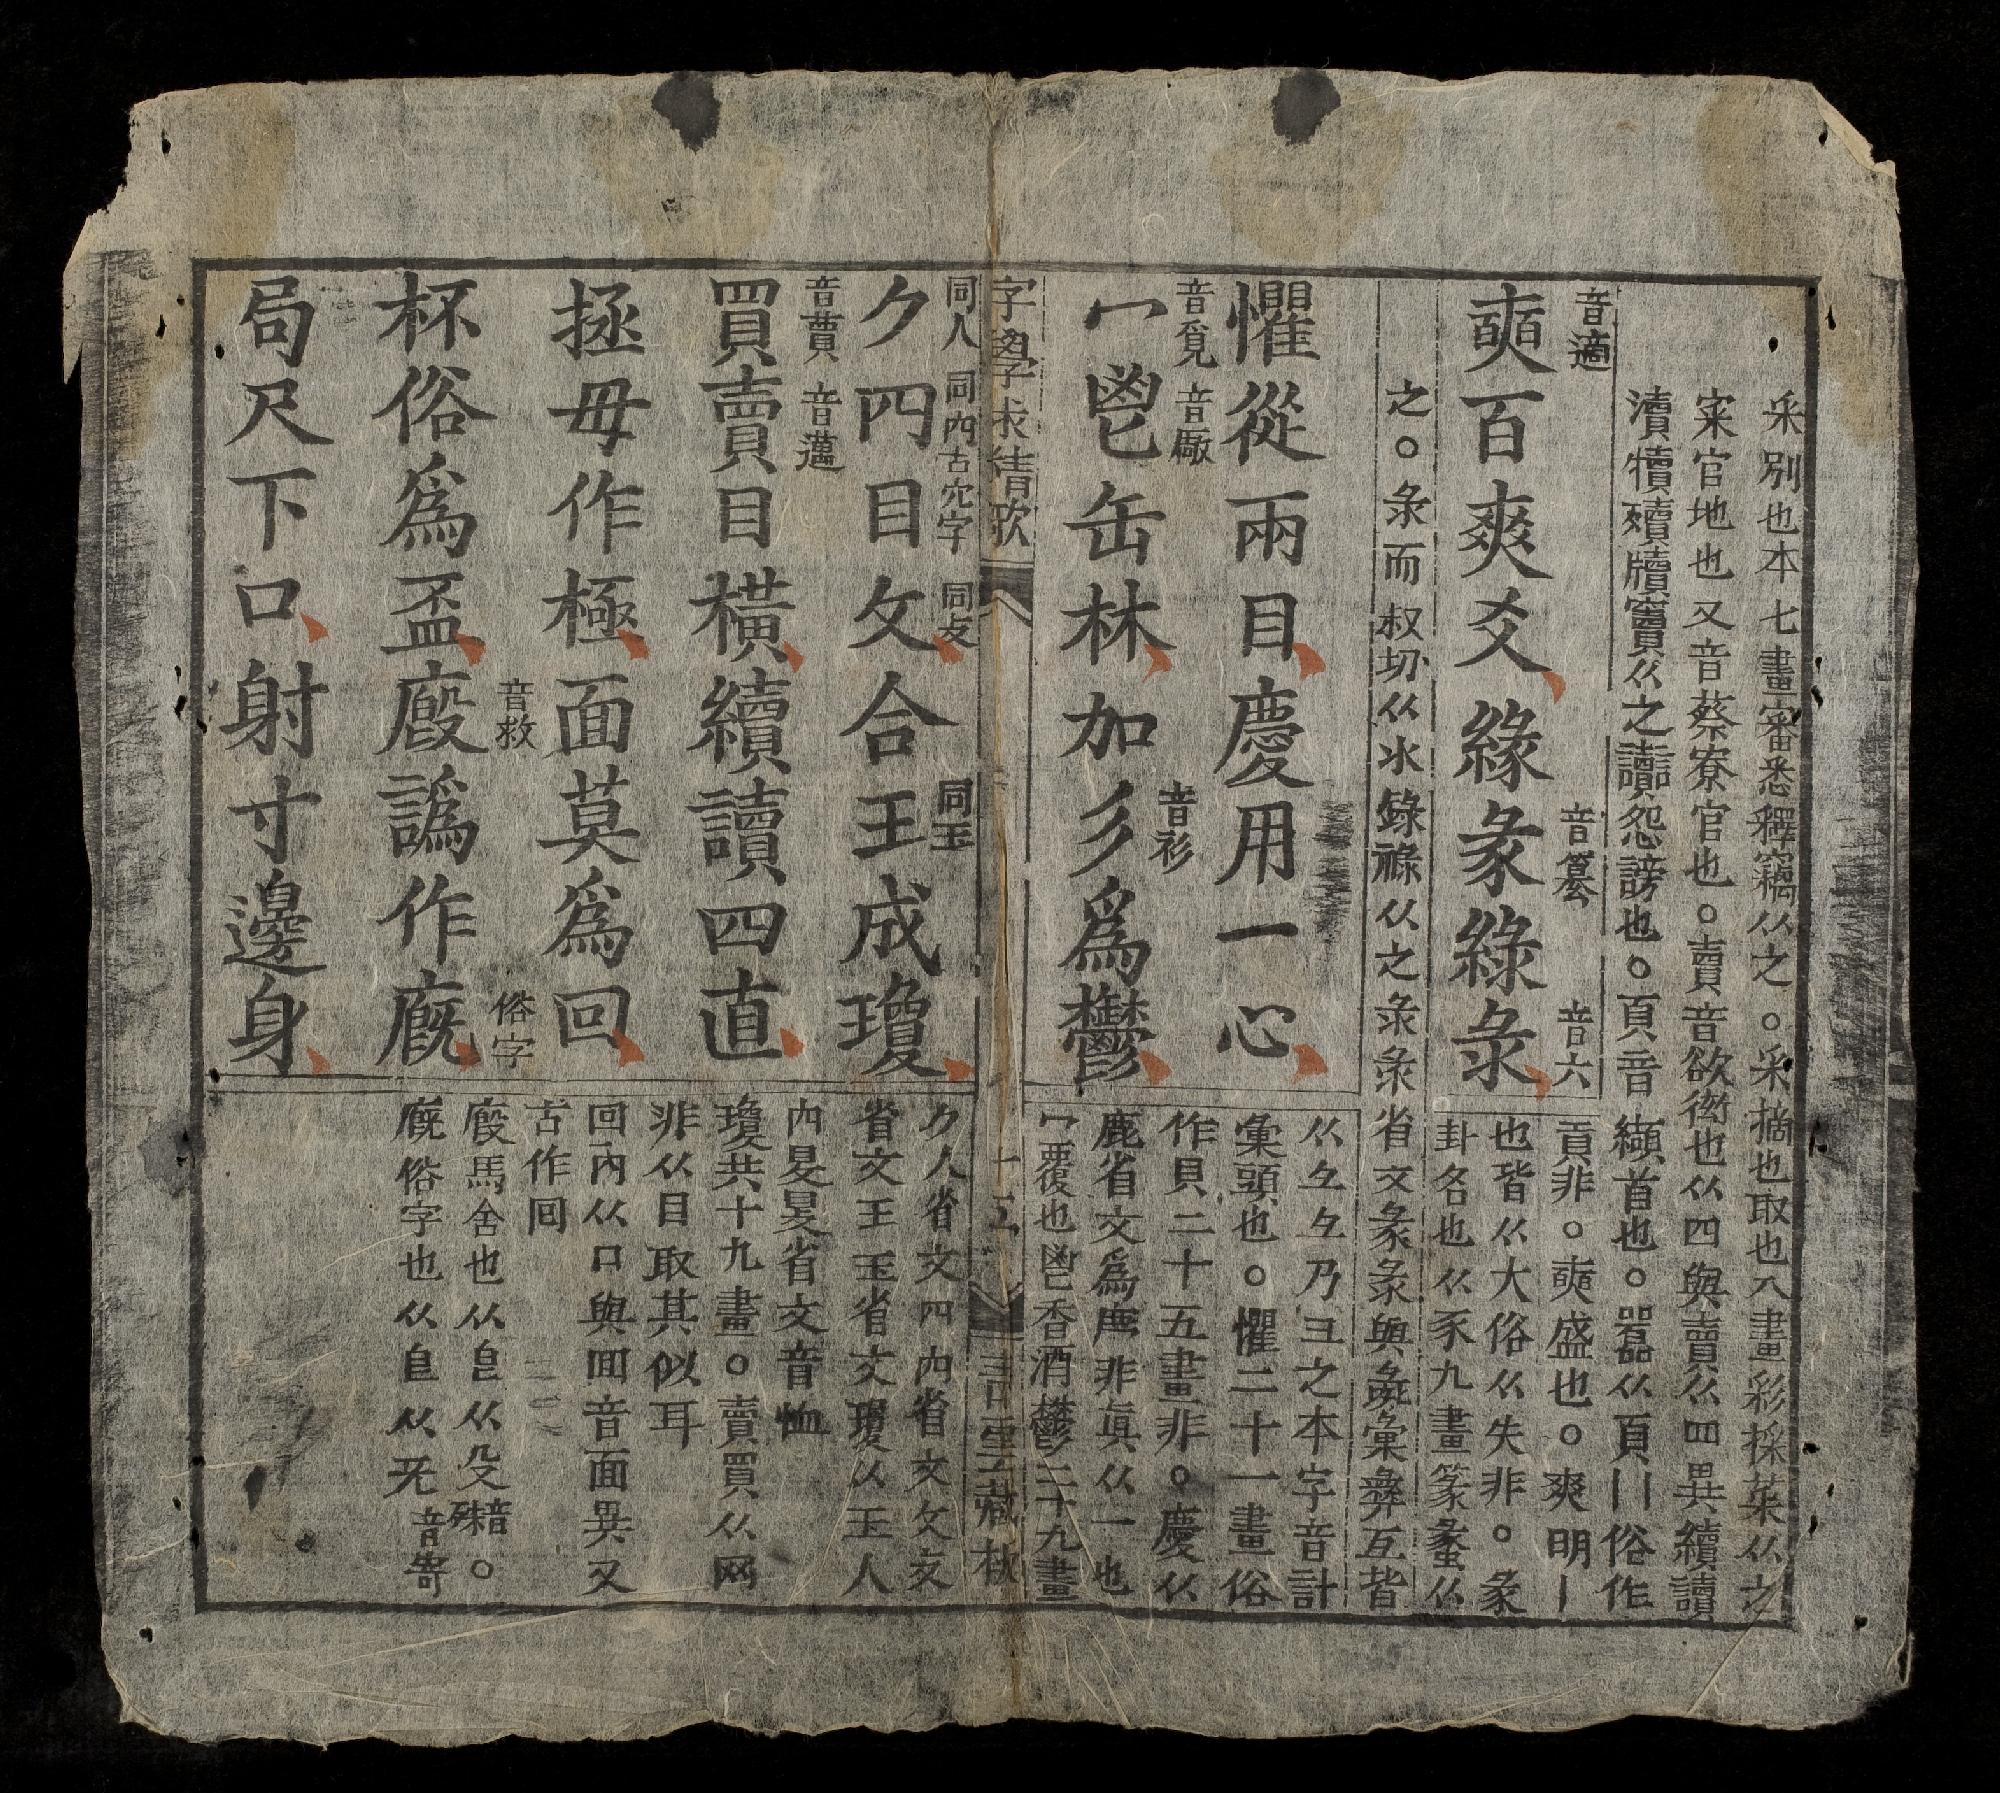 釆別也本七畫審悉釋竊从之○采摘也取也八畫彩採菜从之
寀官地也又音蔡寮官也○𧶠音欲衒也从四與賣从罒異續讀
瀆犢殰牘竇从之讟怨謗也○頁音纈首也○嚚从頁〡〡俗作
音適　音篡　音六
奭百爽爻緣彖綠彔
貢非○奭盛也○爽明〡
也皆从大俗从失非○彖
卦名也从豕九畫篆蠡从
之○彔而叔切从氺錄祿从之彔彔省文彖彖與彝彙彜互皆
从彑彑乃彐之本字音計
彙頭也○懼二十一畫俗
懼從兩目慶用一心
作貝二十五畫非○慶从
鹿省文爲𢉖非真从一也
音覓　音廠　音衫
冖鬯缶林加彡爲鬱
冖覆也鬯香酒鬱二十九畫
字學求精歌
十五
言里藏板
同人　同內古穴字　同攴　同玉
𠂊四目攵合王成瓊
𠂊人省文四內省文攵攴
省文王玉省文瓊从玉人
內𡕥夐省文音恤
音蕒　音邁
買賣目橫續讀四直
瓊共十九畫○賣買从网
非从目取其似耳
拯毋作極面莫爲回
回內从口與囬音面異又
古作囘
音救　俗字
杯俗爲盃廄譌作廐
廄馬舍也从皀从殳音殊○
廐俗字也从自从旡音寄
局尺下口射寸邊身